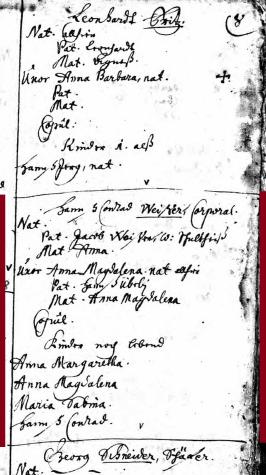 Leonhardt
Nat. allhie
Pat. Leonhardt
Mat.
Uxor Anna Barbara, nat.
Pat.
Mat.
Copul.
Kinder 1. alß
Hanß Jerg, nat.
Hanß Conrad Weißer, Corporal.
Nat.
Pat. Jacob Weißer, w. Schultheiß
Mat. Anna.
Uxor Anna Magdalena. nat. allhie
Pat. Hanß Übely
Mat. Anna Magdalena
Copul.
Kinder noch lebend
Anna Margaretha.
Anna Magdalena
Maria Sabina.
Hanß Conrad.
Georg Schneider, Schäffer.
Nat.